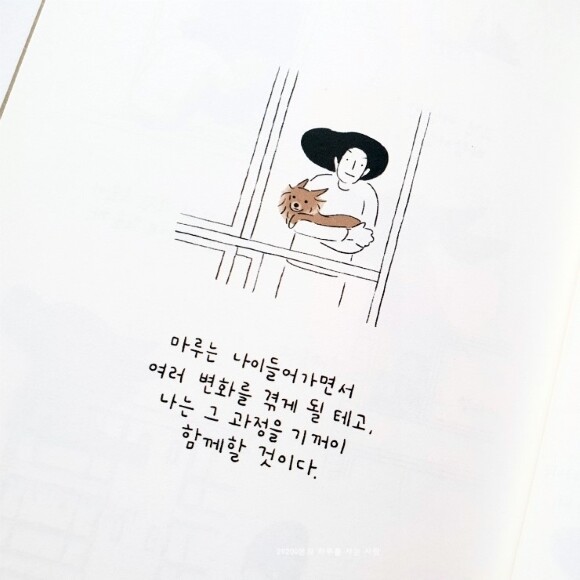 마루는 나이들어가면서
여러 변화를 겪게 될 테고,
나는 그 과정을 기꺼이
함께할 것이다.